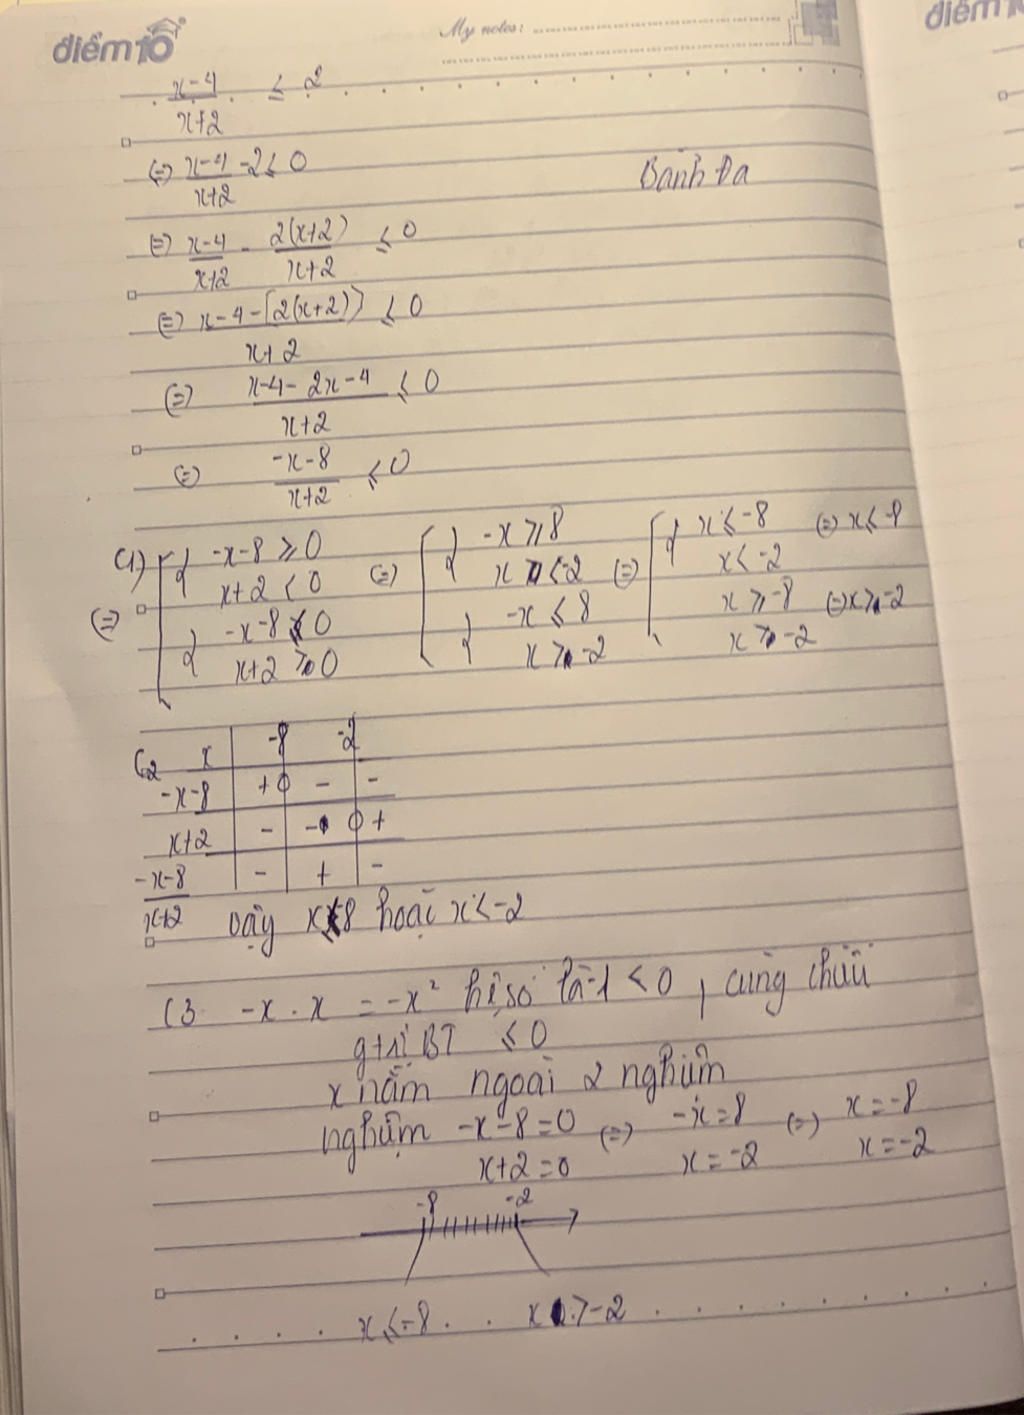 điểm10
My notes:
điểm10
x-4/x+2 ≤ 2
(=) x-4/x+2 - 2 ≤ 0
Bành Đa
(=) x-4/x+2 - 2(x+2)/x+2 ≤ 0
(=) x-4-[2(x+2)]/x+2 ≤ 0
(=) x-4-2x-4/x+2 ≤ 0
(=) -x-8/x+2 ≤ 0
C1) (=) [ { -x-8 ≥ 0 (=) [ { -x ≥ 8 (=) [ { x ≤ -8 (=) x ≤ -8
x+2 < 0 x < -2 x < -2
{ -x-8 ≤ 0 { -x ≤ 8 x ≥ -8 (=) x > -2
x+2 > 0 x > -2 x > -2
C2 x -8 -2
-x-8 + 0 - -
x+2 - - 0 +
-x-8/x+2 - + -
vậy x ≤ -8 hoặc x < -2
C3 -x . x = -x² hệ số là -1 < 0, cùng chiều
gtrị BT ≤ 0
x nằm ngoài 2 nghiệm
nghiệm -x-8=0 (=) -x=8 (=) x=-8
x+2=0 x=-2 x=-2
-8 -2
x ≤ -8 x > -2